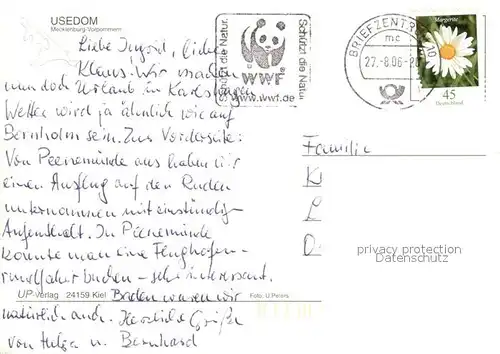 USEDOM
Mecklenburg-Vorpommern
Liebe Ingrid, lieber
Klaus! Wir machen
nun doch Urlaub in Karlshagen
Wetter wird ja ähnlich wie auf
Bornholm sein. Zur Vorderseite:
Von Peenemünde aus haben wir
einen Ausflug auf den Ruden
unternommen mit einstündig.
Aufenthalt. In Peenemünde
konnte man eine Flughafen-
rundfahrt buchen - sehr interessant.
UP-Verlag 24159 Kiel Baden waren wir Foto: U.Peters
natürlich auch. Herzliche Grüße
von Helga u. Bernhard
Schützt die Natur.
WWF®
www.wwf.de
Schützt die Natur.
BRIEFZENTRUM
mc
27.-8.06-20
Margerite
45
Deutschland
Familie
K
L
D
privacy protection
Datenschutz